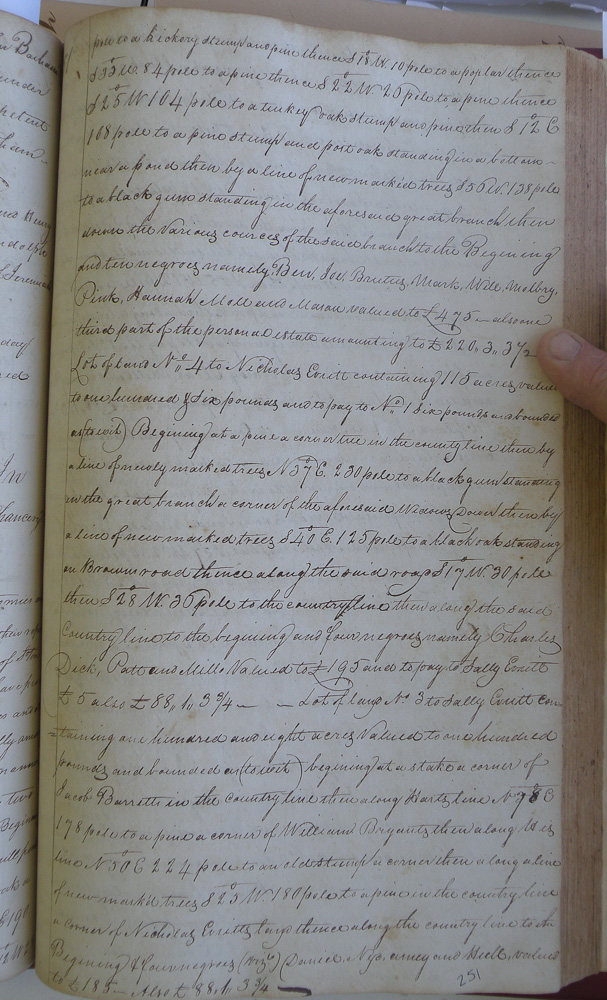 pole to a hickory stump and pine thence S 18 W. 10 pole to a poplar thence
S 35 W. 84 pole to a pine thence S 22 W. 20 pole to a pine thence
S 25 W 104 pole to a turkey oak stump and pine then S 12 E
108 pole to a pine stump and post oak standing in a bottom
near a pond then by a line of new marked trees S 56 W. 138 pole
to a black gum standing in the aforesaid great branch then
down the various courses of the said branch to the Begining
and ten negroes namely, Ben, Joe, Brutus, Mark, Will, Melbry,
Pink, Hannah Moll and Mason valued to £475 – also one
third part of the personal estate amounting to £220,,3,,3½
Lot of land No. 4 to Nicholas Evritt containing 115 acres valued
to one hundred & Six pounds and to pay to No. 1 six pounds and bounded
as (to wit) Begining at a pine a corner tree in the county line then by
a line of newly marked trees N 57 E. 230 pole to a black gum standing
in the great branch a corner of the aforesaid Widows Dower then by
a line of new marked trees S 40 E. 125 pole to a black oak standing
on Browns road thence along the said road S 17 W. 30 pole
then S 28 W. 36 pole to the country line then along the said
Country line to the begining and four negroes namely Charles
Dick, Patt and Mills Valued to £195 and to pay to Sally Evritt
£5 also £88,,1,,3 3/4 – – Lot of land No. 3 to Sally Evritt con
=taining one hundred and eight acres Valued to one hundred
pounds and bounded as (to wit) begining at a stake a corner of
Jacob Barretts in the country line then along Harts line N 78 E
178 pole to a pine a corner of William Bryants then along his
line N 50 E 224 pole to an old stump a corner then along a line
of new markd trees S 25 W. 180 pole to a pine in the country line
a corner of Nicholas Evritts land thence along the country line to the
Begining & four negroes (viz) Daniel, Nys, and Hill, valued
to £185 – Also £88,,1,,3 3/4
251